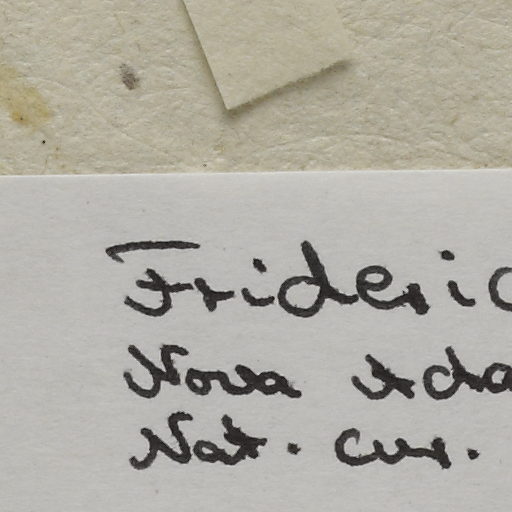 Frideric
Nova Acta
Nat. cur.